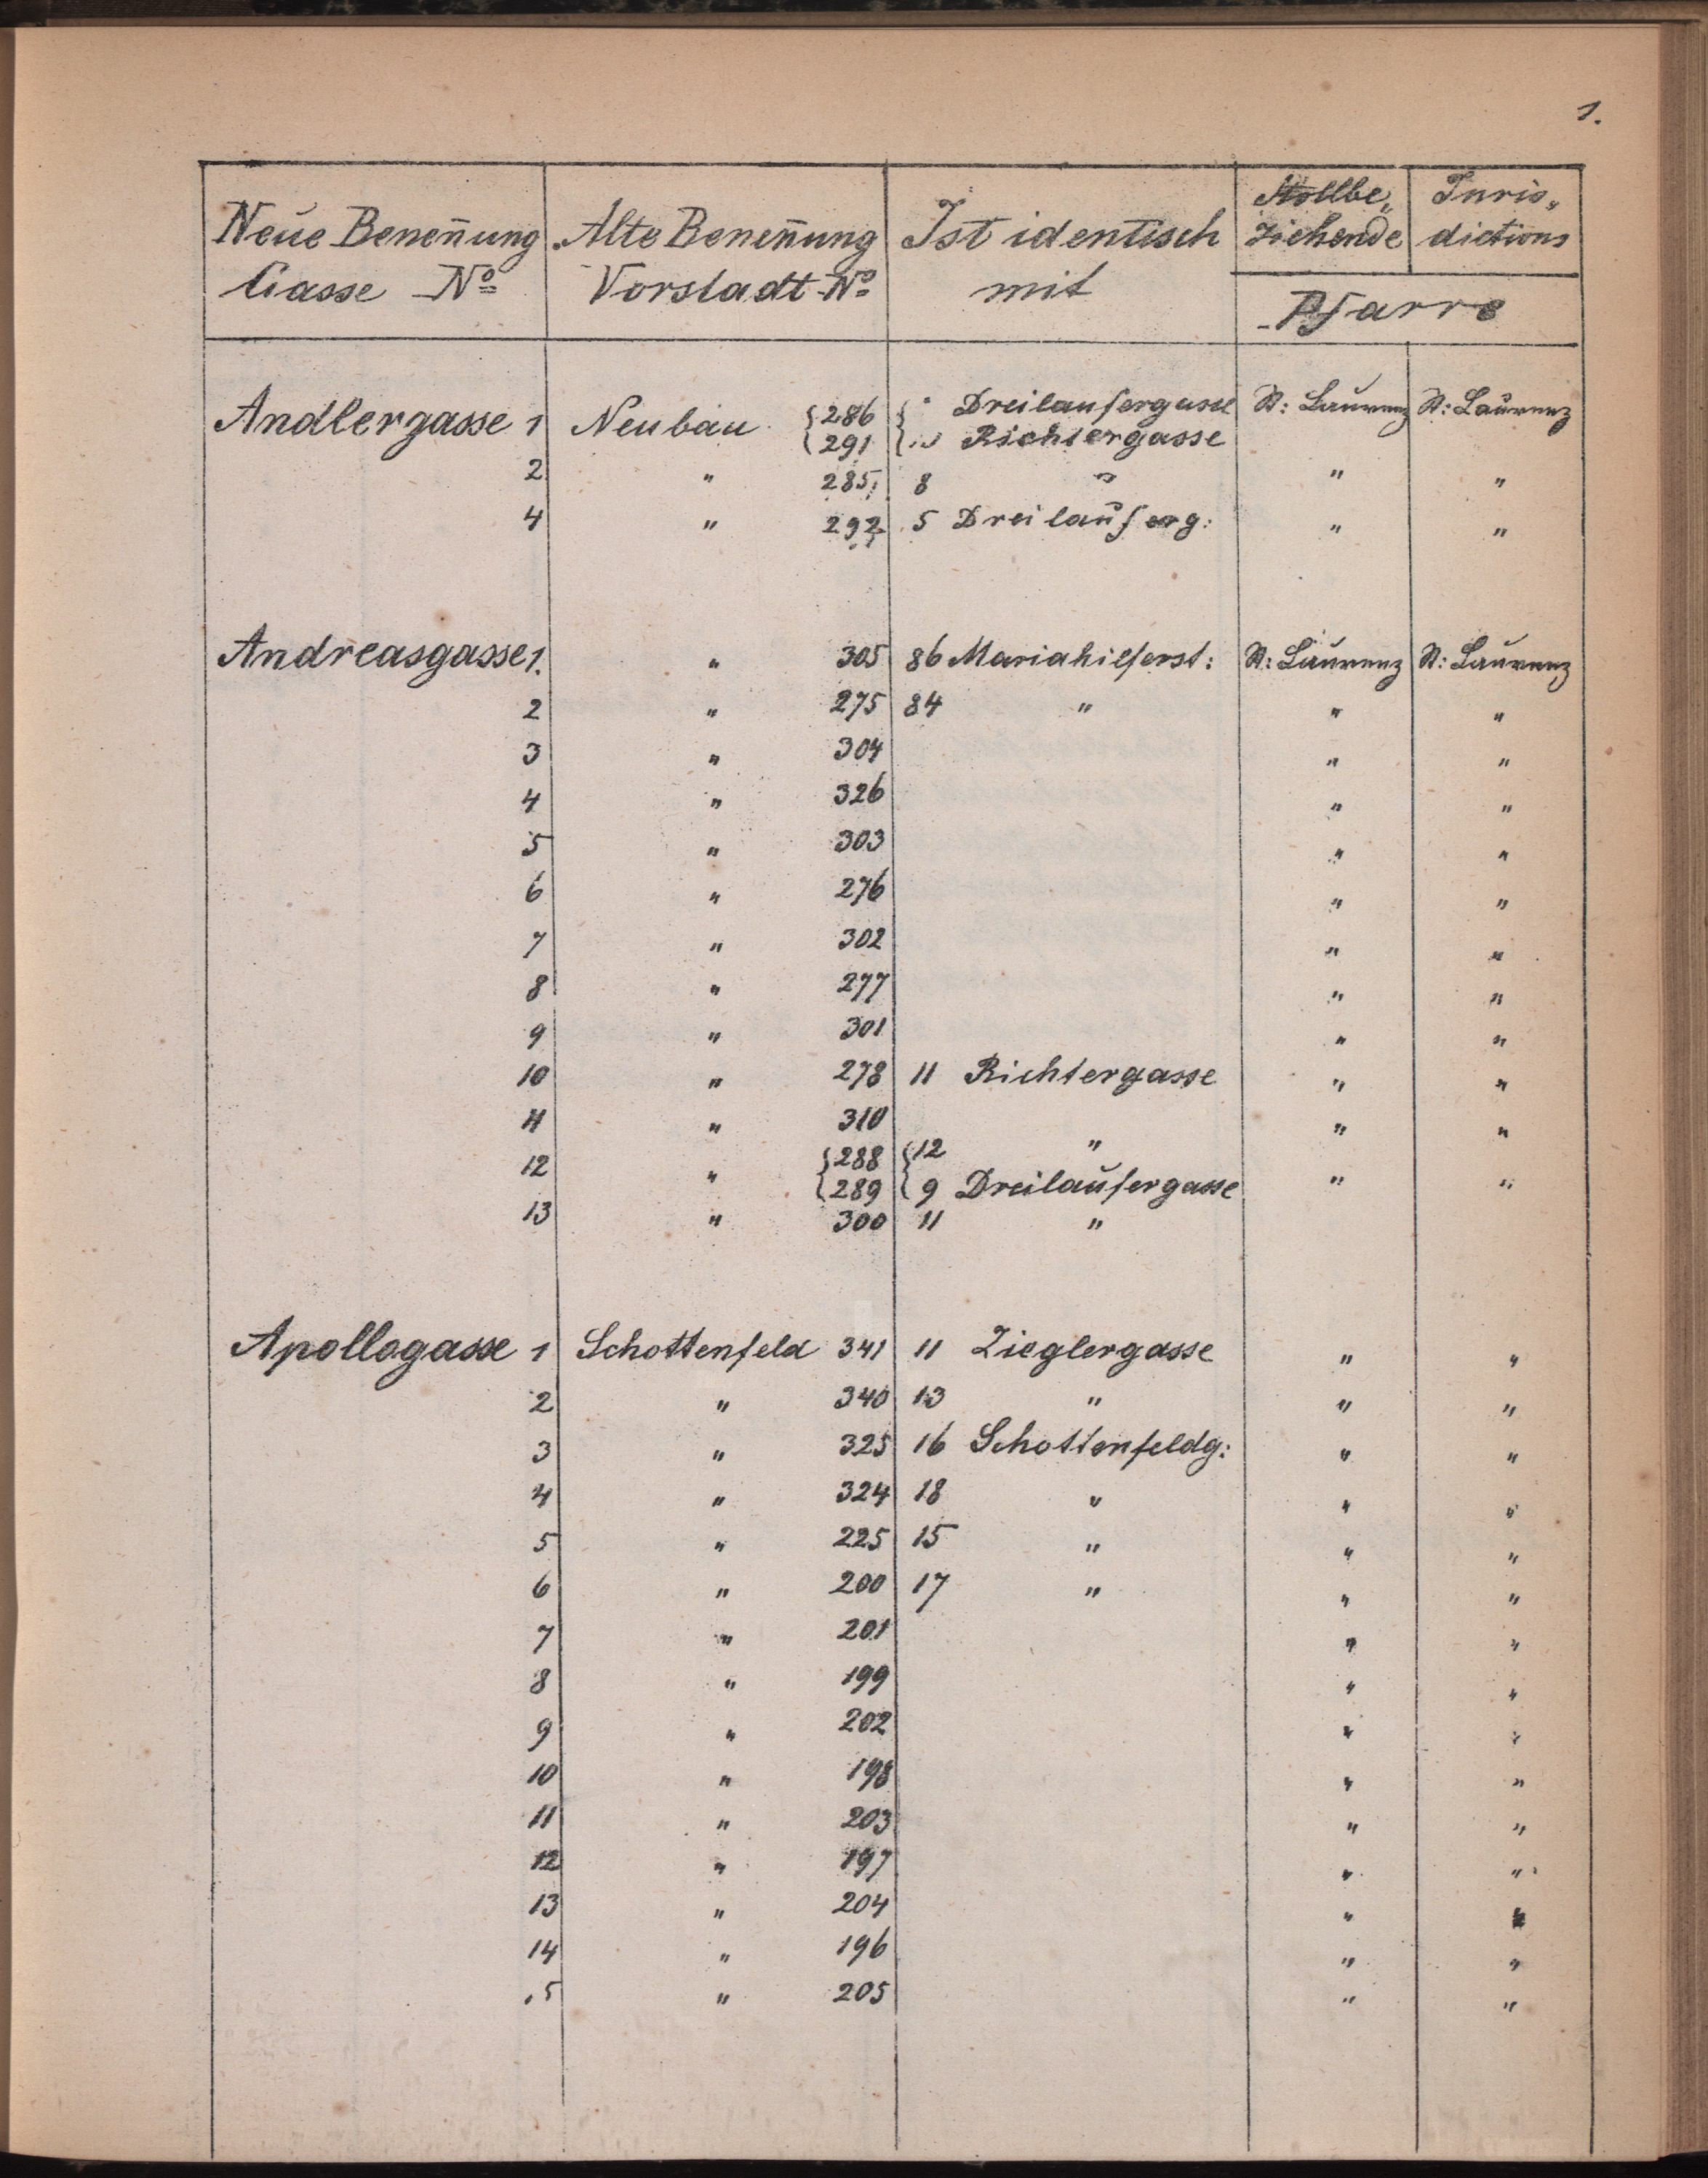 1.
Neue Benen̄ung Gasse No | Alte Benen̄ung Vorstadt No | Ist identisch mit | Stollbe„ ziehende | Juris„ dictions
Pfarre
Andlergasse 1 | Neubau {286 | { Dreilaufergasse | St: Laurenz | St: Laurenz
{291 | { Richtergasse
2 | " 285 | 8 " | " | "
4 | " 292 | 5 Dreilauferg: | " | "
Andreasgasse 1. | " 305 | 86 Mariahilferst: | St: Laurenz | St: Laurenz
2 | " 275 | 84 " | " | "
3 | " 304 | | " | "
4 | " 326 | | " | "
5 | " 303 | | " | "
6 | " 276 | | " | "
7 | " 302 | | " | "
8 | " 277 | | " | "
9 | " 301 | | " | "
10 | " 278 | 11 Richtergasse | " | "
11 | " 310 | | " | "
12 | " {288 | {12 " | " | "
{289 | {9 Dreilaufergasse
13 | " 300 | 11 "
Apollogasse 1 | Schottenfeld 341 | 11 Zieglergasse | " | "
2 | " 340 | 13 " | " | "
3 | " 325 | 16 Schottenfeldg: | " | "
4 | " 324 | 18 " | " | "
5 | " 225 | 15 " | " | "
6 | " 200 | 17 " | " | "
7 | " 201 | | " | "
8 | " 199 | | " | "
9 | " 202 | | " | "
10 | " 198 | | " | "
11 | " 203 | | " | "
12 | " 197 | | " | "
13 | " 204 | | " | "
14 | " 196 | | " | "
15 | " 205 | | " | "